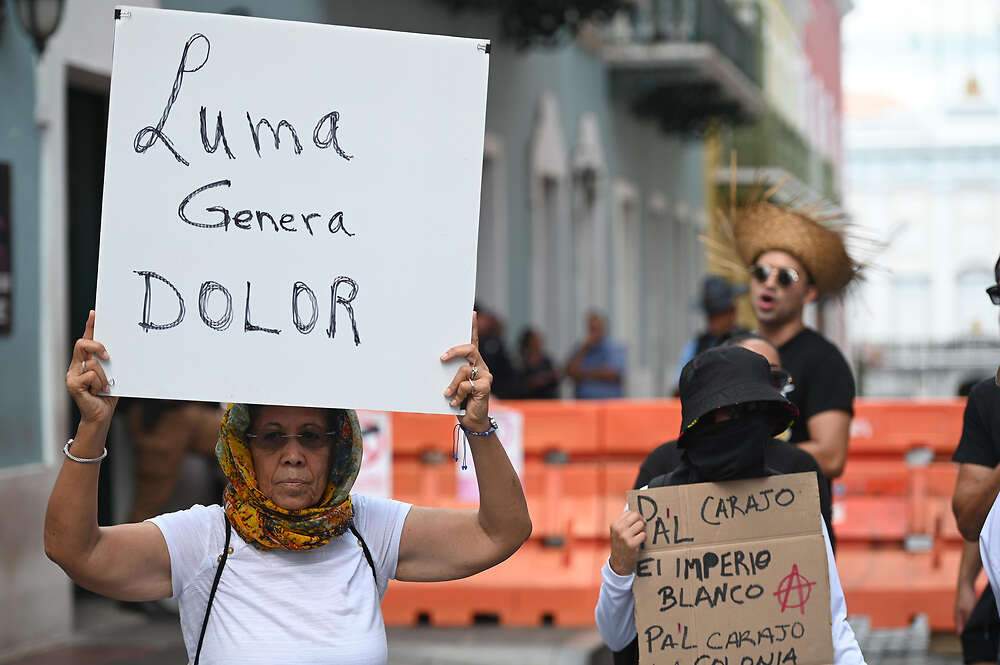 Luma
Genera
DOLOR
PA'L CARAJO
El IMPERIO
BLANCO
PA'L CARAJO
COLONIA